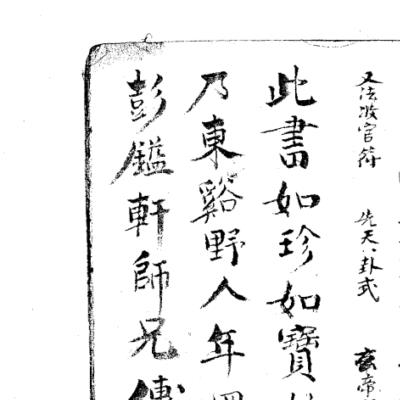 又法收官符　先天八卦式　玄帝
此書如珍如寶
乃東谿野人年
彭鎰軒師兄傳